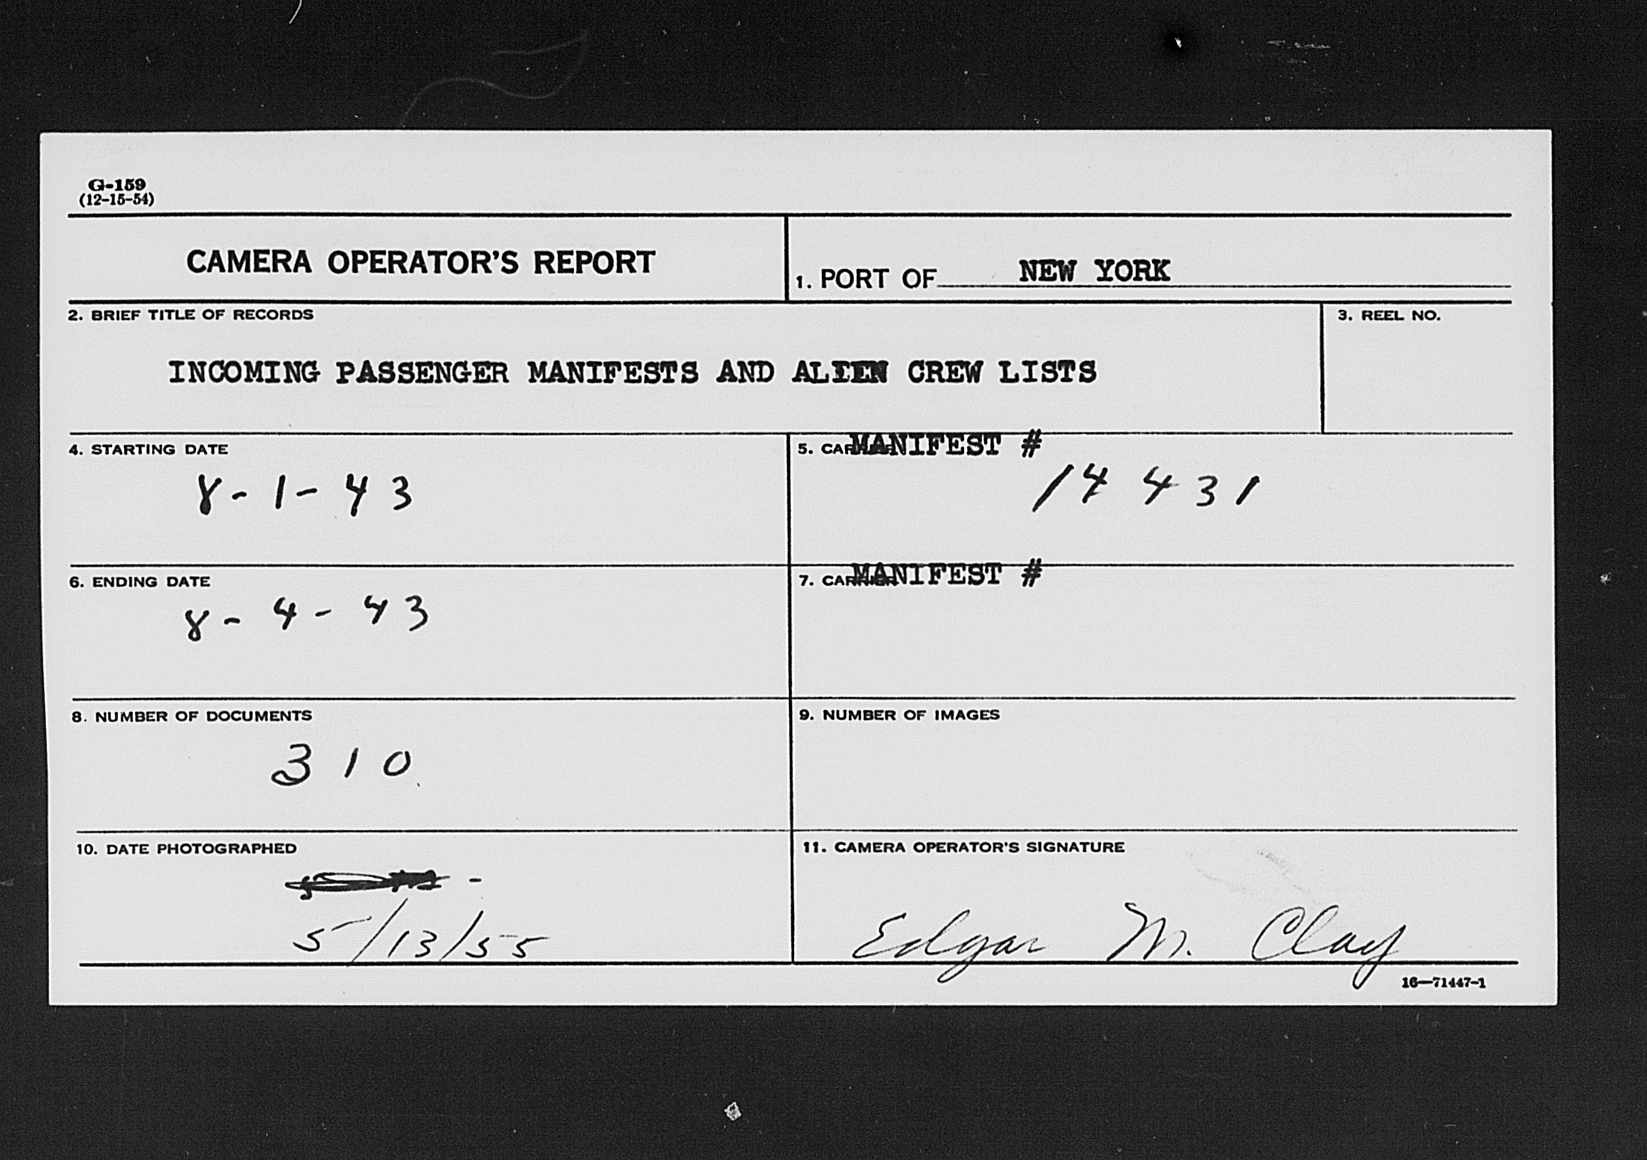 G-159
(12-15-54)
CAMERA OPERATOR'S REPORT
1. PORT OF NEW YORK
2. BRIEF TITLE OF RECORDS
3. REEL NO.
INCOMING PASSENGER MANIFESTS AND ALIEN CREW LISTS
4. STARTING DATE
8-1-43
5. CARRIER MANIFEST #
14431
6. ENDING DATE
8-4-43
7. CARRIER MANIFEST #
8. NUMBER OF DOCUMENTS
310
9. NUMBER OF IMAGES
10. DATE PHOTOGRAPHED
5/13/55
11. CAMERA OPERATOR'S SIGNATURE
Edgar M. Clay
16—71447-1